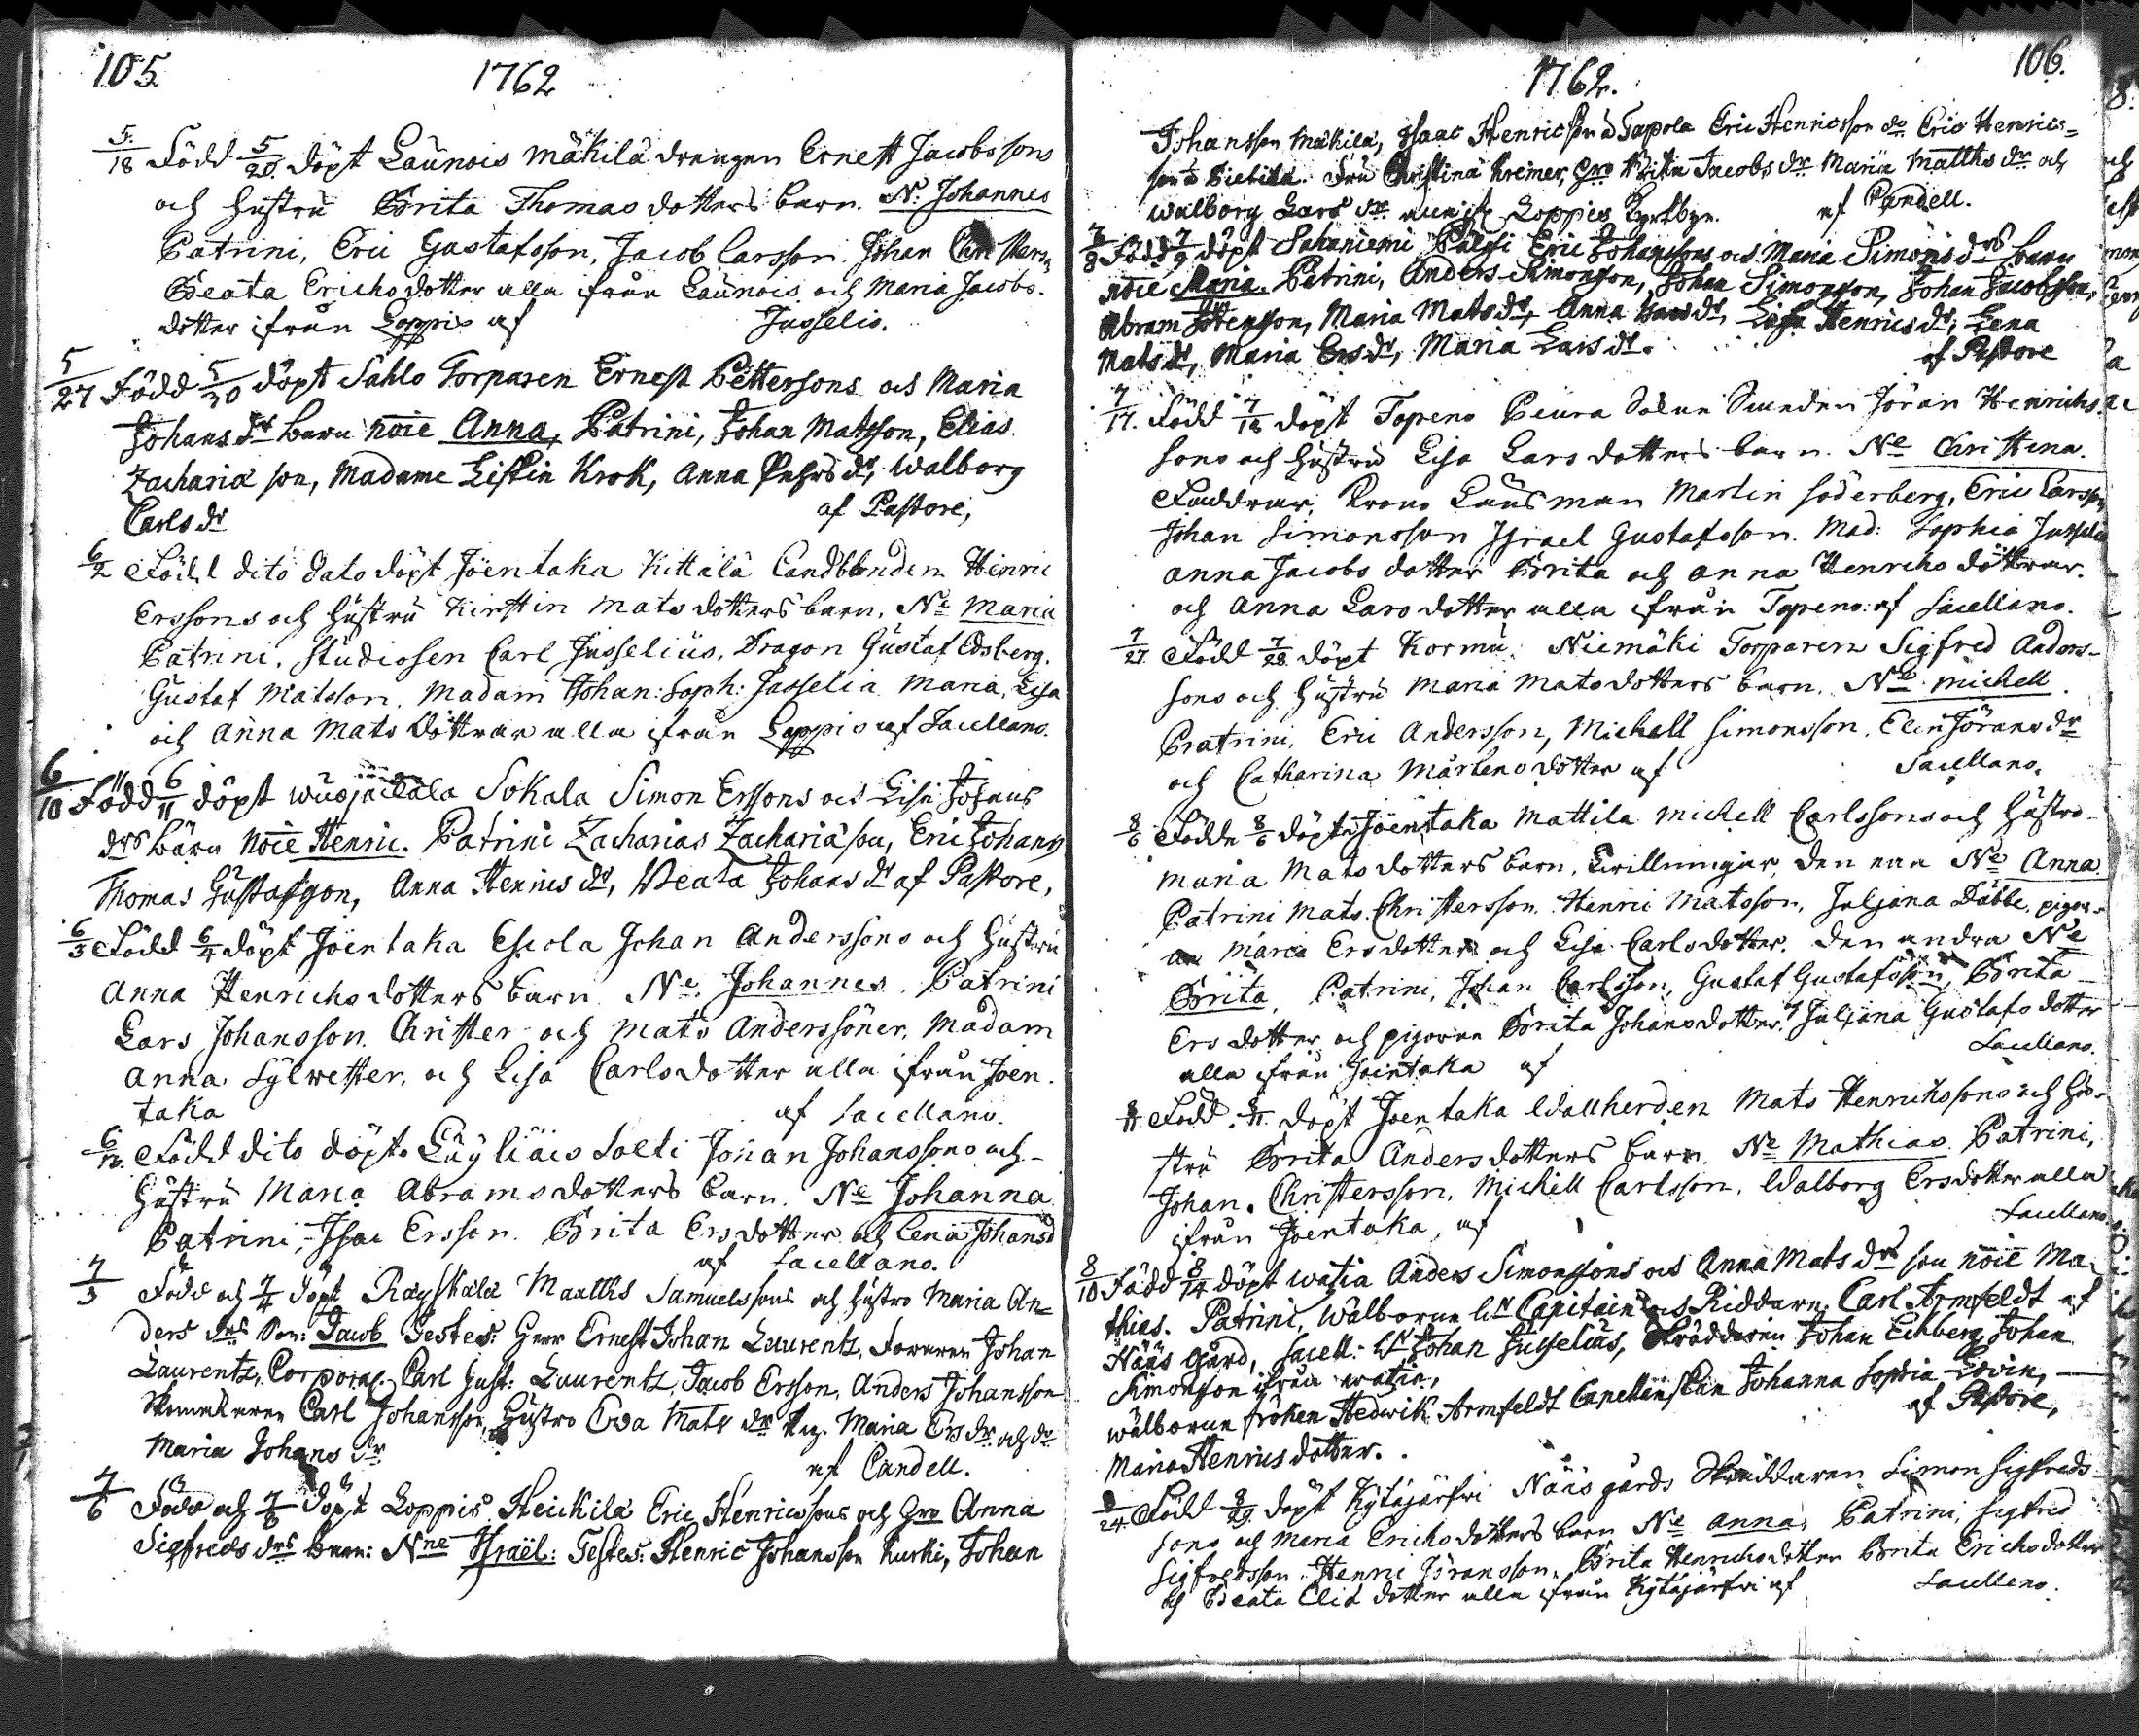 105. 1762
5/18 Född 5/20 döpt Launois Mäkilä drengen Ernest Jacobssons
och hustru Brita Thomasdotters barn. N: Johannes
Patrini, Eric Gustafsson, Jacob Larsson, Johan Christers:
Beata Erichsdotter alla ifrån Launois och Maria Jacobs-
dotter ifrån Loppis af Jusselio.
5/27 Född 5/30 döpt Sahlo Torparen Ernest Pettersons och Maria
Johans dr barn noie Anna, Patrini, Johan Matsson, Elias
Zachariæ son, Madame Liskin Krok, Anna Pehrs dr, Walborg
Carls dr af Pastore,
6/2 Född dito dato döpt Jöentaka Kittälä Landbonden Henric
Erssons och hustru Kirstin Matsdotters barn. Ne Maria
Patrini, Studiosen Carl Jusselius, Dragon Gustaf Edsberg.
Gustaf Matsson, Madam Johan: Soph: Jusselia Maria, Lisa
och Anna Mats döttrar alla ifrån Loppis af Sacellano.
6/10 Född 6/11 döpt Sokala Simon Erssons och Lisa Johans
drs barn noie Henric. Patrini Zacharias Zachariæ son, Eric Johans
Thomas Gustafsson, Anna Henrics dr, Beata Johans dr af Pastore,
6/3 Född 6/4 döpt Jöentaka Escola Johan Anderssons och hustru
Anna Henrichsdotters barn Ne. Johannes. Patrini
Lars Johansson, Christer och Mats Anderssöner, Madam
Anna Sylwester, och Lisa Carlsdotter alla ifrån Joen-
taka af Sacellano.
6/12 Född dito döpt Läyliäis Soldi Johan Johanssons och
hustru Maria Abramsdotters barn. Ne Johanna
Patrini, Isac Ersson. Brita Ersdotter och Lena Johansd
af Sacellano.
7/3 Född och 7/4 döpt Räyskälä Matths Samuelssons och hustro Maria An=
ders drs Son: Jacob Testes: Herr Ernest Johan Laurentz, Johan
Laurentz, Corporal. Carl Gust: Laurentz, Jacob Ersson, Anders Johansson
Skomakaren Carl Johansson, Hustro Ewa Mats dr Pig. Maria Ers dr och do
Maria Johans dr. af Candell.
7/6 Född och 7/8 döpt Loppis Heickilä Eric Henricssons och Hro Anna
Sigfreds drs barn: Nne Israël: Testes: Henric Johansson Kurki, Johan
1762. 106.
Johansson Mäkilä, Isaac Henricson Tapola Eric Henricsson do Eric Henrics=
son Pietilä. Fru Christina Kremer, Hro Brita Jacobs dr Maria Matths dr och
Walborg Lars dr Loppis Kyrkbyn. af Candell.
7/8 Född 7/9 döpt Sahaniemi Pälsi Eric Johanssons och Maria Simons drs barn
noie Maria. Patrini, Anders Simonsson, Johan Simonsson, Johan Jacobsson,
Abram Jörensson, Maria Mats dr, Anna Hans dr, Lisa Henrics dr, Lena
Mats dr, Maria Ers dr, Maria Lars dr. af Pastore
7/17. Född 7/18 döpt Topeno Peura Jöran Henrichs
sons och hustru Lisa Larsdotters barn. Ne Christina.
Faddrar, Krono Länsman Martin Söderberg, Eric Larsson
Johan Simonsson Israel Gustafsson. Mad: Sophia Jusselia
Anna Jacobs dotter Brita och Anna Henrichs döttrar.
och Anna Lars dotter alla ifrån Topeno af Sacellano.
7/27 Född 7/28 döpt Kormu Niemäki Torparen Sigfred Anders-
sons och hustru Maria Matsdotters barn. Ne Michell.
Patrini, Eric Andersson, Michell Simonsson, Elin Jörans dr
och Catharina Mårtens dotter af Sacellano.
8/6 Födde 8/6 döpte Jöentaka Mattila Michell Carlssons och hustro
Maria Mats dotters barn. Twillningar, den ena Ne Anna
Patrini Mats Christersson. Henric Matsson, Juljana Dabbe, pigor-
na Maria Ersdotter och Lisa Carlsdotter. den andra Ne
Brita, Patrini, Johan Carlsson, Gustaf Gustafsson, Brita
Ersdotter och pigorna Brita Johansdotter, Juljana Gustafs dotter
alla ifrån Jöentaka af Sacellano.
8/11 Född 8/11 döpt Joentaka Wallherden Mats Henrichssons och hu-
stru Brita Andersdotters barn. Ne Mathias. Patrini,
Johan Christersson, Michell Carlsson, Walborg Ersdotter alla
ifrån Joentaka, af Sacellano
8/10 Född 8/14 döpt Watia Anders Simonssons och Anna Mats drs son noie Ma-
thias. Patrini, Wälborne hr Capitain och Riddaren Carl Armfeldt af
Nääs Gård, Sacell: hr Johan Jusselius, Skräddaren Johan Echberg, Johan
Simonsson ifrån Watia,
wälborne fröken Hedwik Armfeldt Capellanskan Johanna Sophia Lovin,
Maria Henricsdotter. af Pastore,
8/24 Född 8/29 döpt Kytäjärfwi Nääs gårds Skräddaren Simon Sigfreds
sons och Maria Erichsdotters barn Ne Anna, Patrini, Sigfred
Sigfredsson, Henric Jöransson, Brita Henrichsdotter Brita Erichsdotter
och Beata Elis dotter alla ifrån Kytäjärfwi af Sacellano.